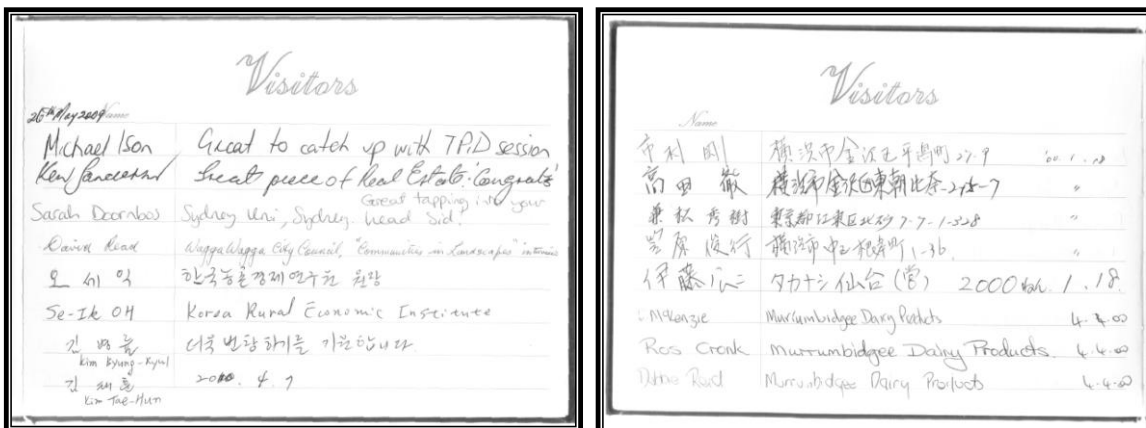 Visitors
26th May 2009 Name
Michael Ison Great to catch up with TPiD session
Ken Great piece of Real Estate. Congrats
Sarah Doornbos Sydney Uni, Sydney. Great tapping into your head Sid!
David Read Wagga Wagga City Council, "Communities in Landscapes"
오 세 익 한국농촌경제연구원 원장
Se-Ik OH Korea Rural Economic Institute
김 병 률 더욱 번창하기를 기원합니다
Kim Byung-Ryul
김 태 훈 4. 7
Kim Tae-Hun
Visitors
Name
市利 剛 横浜市金沢区平潟町27-9
高田 徹 横浜市金沢区東朝比奈 〃
兼松 秀樹 東京都江東区北砂7-7-1-328 〃
笠原 俊行 横浜市中区 1-36 〃
伊藤 タカナシ仙台(営) 2000 1. 18.
McKenzie Murrumbidgee Dairy Products 4.4.00
Ros Cronk Murrumbidgee Dairy Products. 4.4.00
Read Murrumbidgee Dairy Products 4-4-00